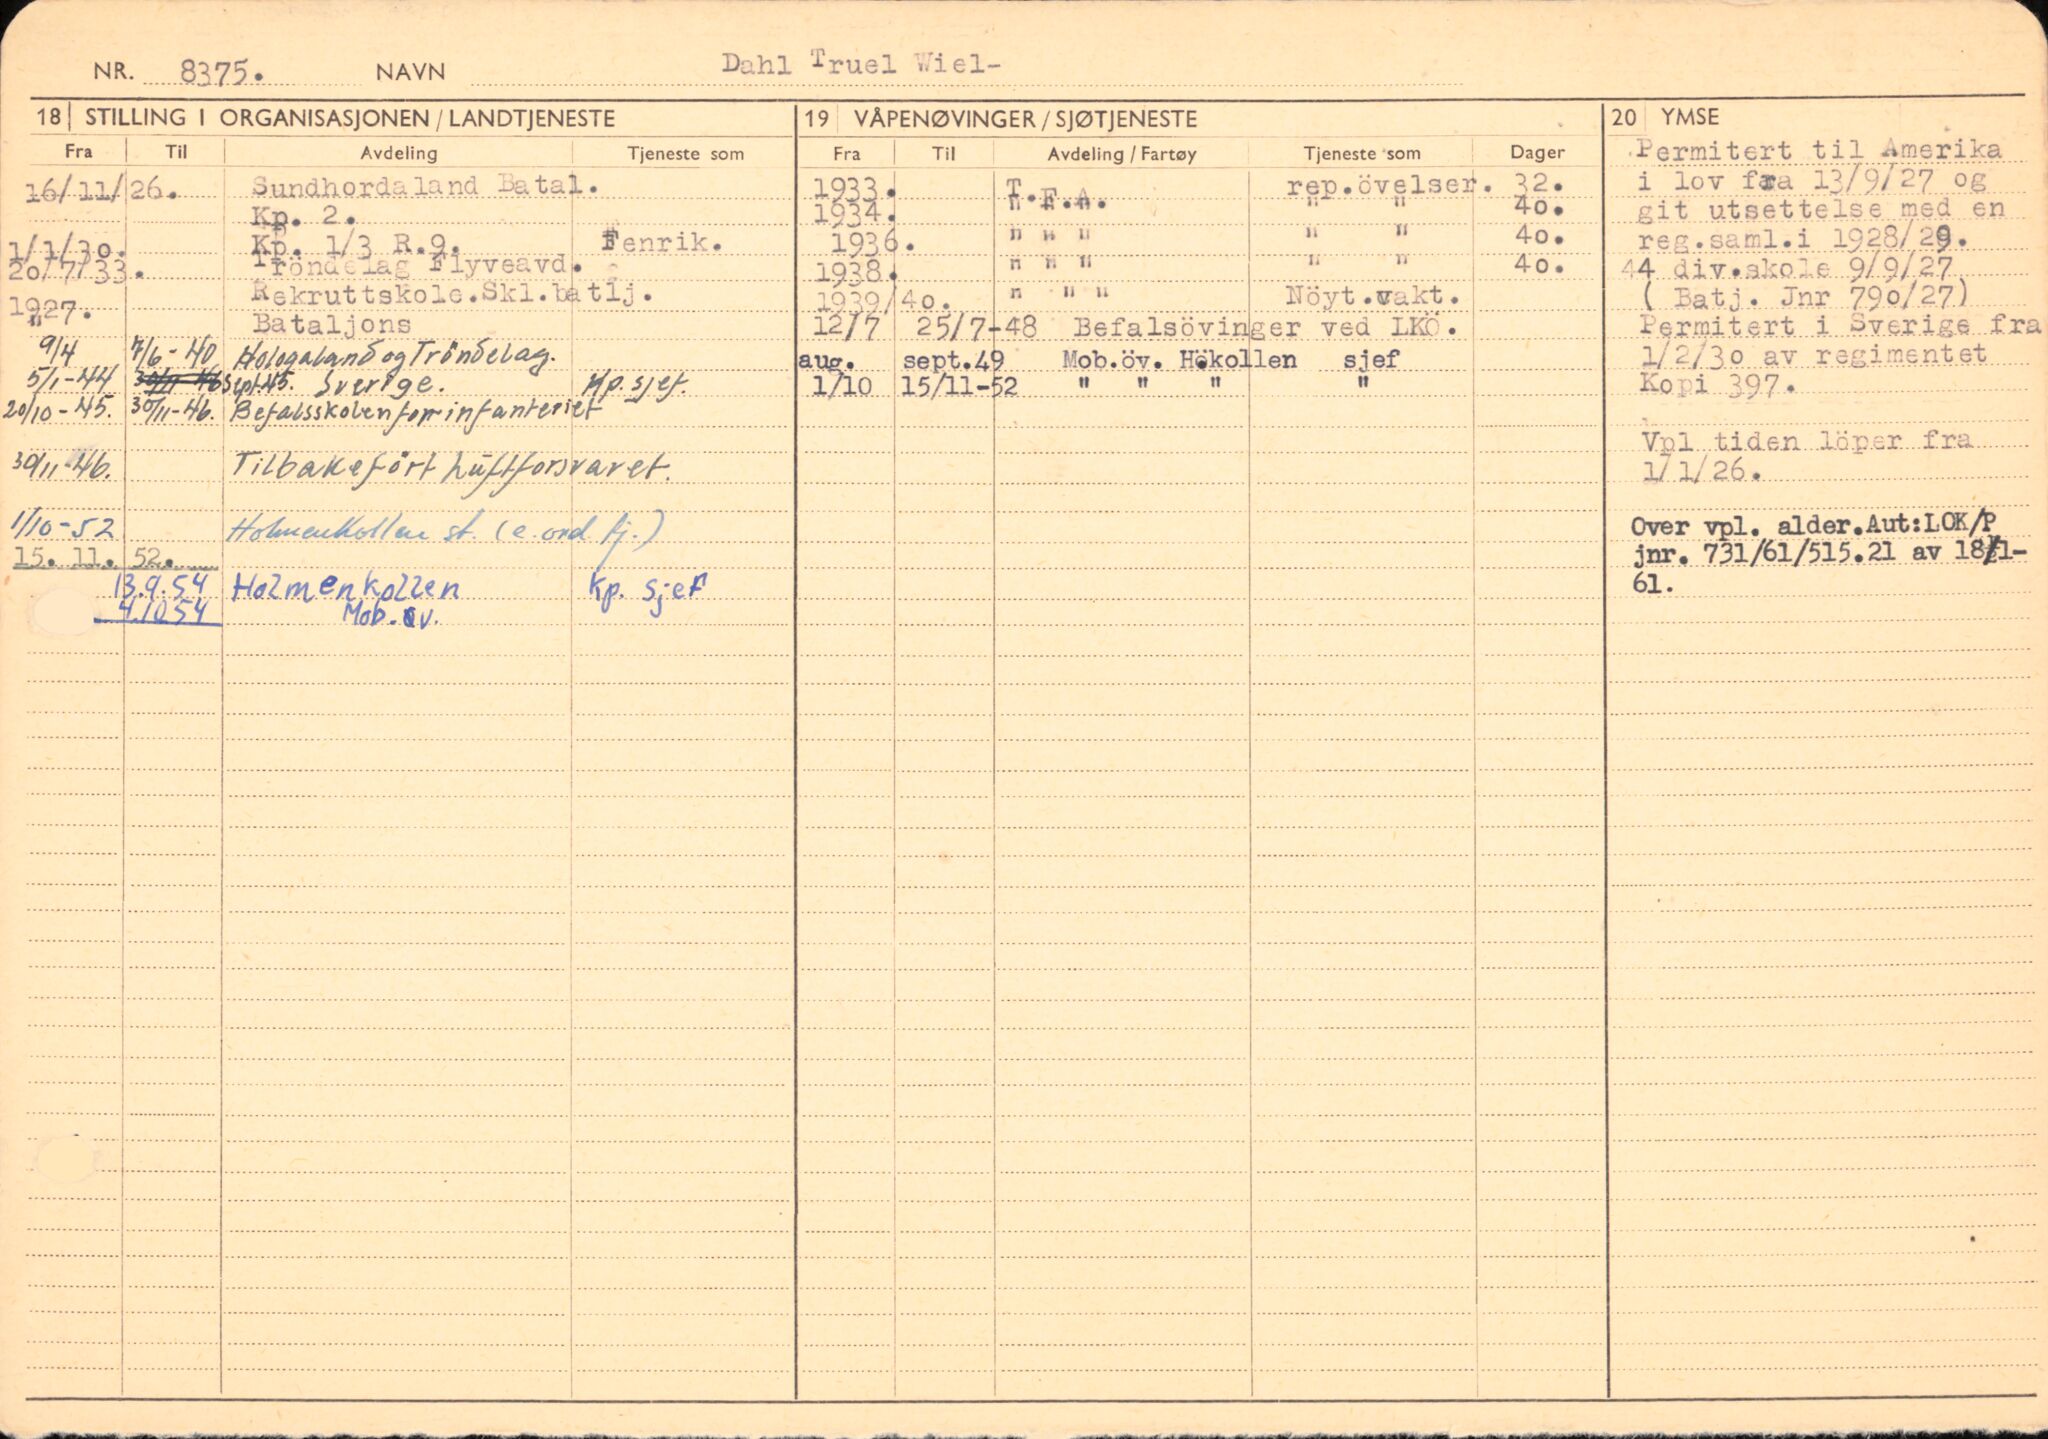 NR. 8375. NAVN Dahl Truel Wiel-
18 STILLING I ORGANISASJONEN/LANDTJENESTE
Fra Til Avdeling Tjeneste som
16/11/26. Sundhordaland Batal.
Kp. 2.
1/1/30. Kp. 1/3 R.9. Fenrik.
20/7/33. Tröndelag Flyveavd.
1927. Rekruttskole.Skl.batlj.
" Bataljons
9/4 7/6-40 Hologaland og Tröndelag.
5/1-44 Sept.45. Sverige. Kp. sjef.
20/10-45. 30/11-46. Befalsskolen for infanteriet
30/11-46. Tilbakefört Luftforsvaret.
1/10-52 Holmenkollen st. (e. ord. tj.)
15. 11. 52.
13.9.54 Holmenkollen Kp. sjef
4.10 54 Mob. öv.
19 VÅPENØVINGER/SJØTJENESTE
Fra Til Avdeling/Fartøy Tjeneste som Dager
1933. T.F.A. rep.övelser. 32.
1934. " " " " " 40.
1936. " " " " " 40.
1938. " " " " " 40.
1939/40. " " " Nöyt.vakt.
12/7 25/7-48 Befalsövinger ved LKÖ.
aug. sept.49 Mob.öv. H.kollen sjef
1/10 15/11-52 " " " "
20 YMSE
Permitert til Amerika
i lov fra 13/9/27 og
git utsettelse med en
reg.saml.i 1928/29.
44 div.skole 9/9/27
( Batj. Jnr 790/27)
Permitert i Sverige fra
1/2/30 av regimentet
Kopi 397.
Vpl tiden löper fra
1/1/26.
Over vpl. alder.Aut:LOK/P
jnr. 731/61/515.21 av 18/1-
61.